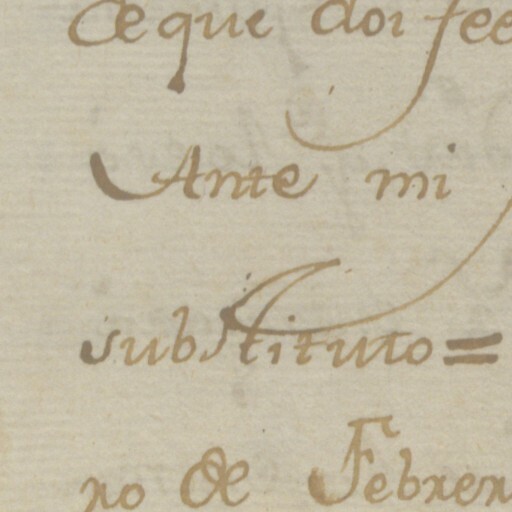 De que doi fee
Ante mi
substituto =
ro de Febrer